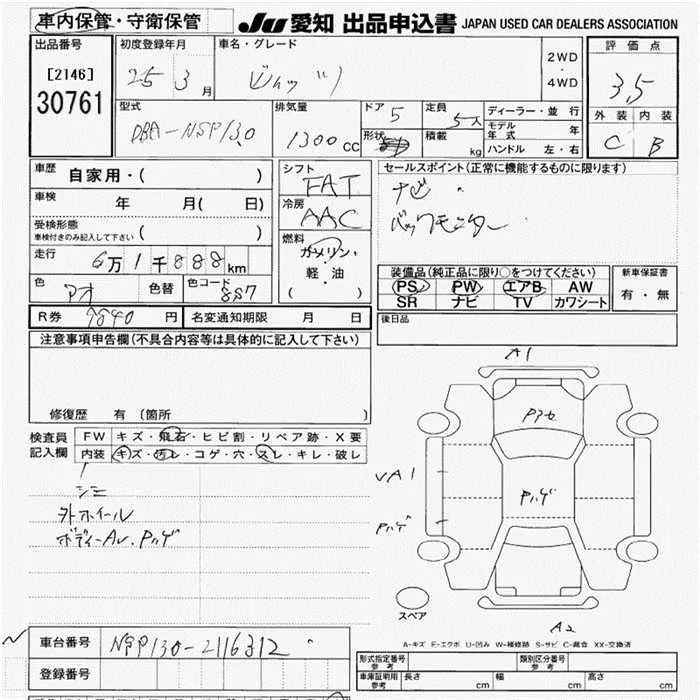 車内保管・守衛保管
JU 愛知 出品申込書 JAPAN USED CAR DEALERS ASSOCIATION
出品番号
[2146]
30761
初度登録年月
25 3 月
車名・グレード
ビッツ
2WD
・
4WD
評価点
3.5
外装 内装
C B
型式
DBA-NSP130
排気量
1300 cc
ドア 5
形状
定員 5人
積載 kg
ディーラー・並行
モデル年式 年
ハンドル 左・右
車歴 自家用・( )
車検 年 月( 日)
受検形態
車検付きのみ記入して下さい ( )
走行 6万1千888km
色 アオ 色替 色コード 8S7
R券 9840 円 名変通知期限 月 日
シフト
FAT
冷房
AAC
燃料
ガソリン・
軽・油
( )
セールスポイント(正常に機能するものに限ります)
ナビ
バックモニター
装備品(純正品に限り○をつけてください)
PS PW エアB AW
SR ナビ TV カワシート
新車保証書
有・無
後日品
注意事項申告欄(不具合内容等は具体的に記入して下さい)
修復歴 有(箇所 )
検査員
記入欄
FW キズ・飛石・ヒビ割・リペア跡・X要
内装 キズ・汚レ・コゲ・穴・スレ・キレ・破レ
シミ
外ホイール
ボディーAU.Pハゲ
A1
Pアセ
VA1
Pハゲ
Pハゲ
スペア
A2
A-キズ E-エクボ U-凹み W-補修跡 S-サビ C-腐食 XX-交換済
車台番号 NSP130-2116312
登録番号
形式指定番号
参考
類別区分番号
参考
車庫証明用
参考
長さ cm 幅 cm 高さ cm